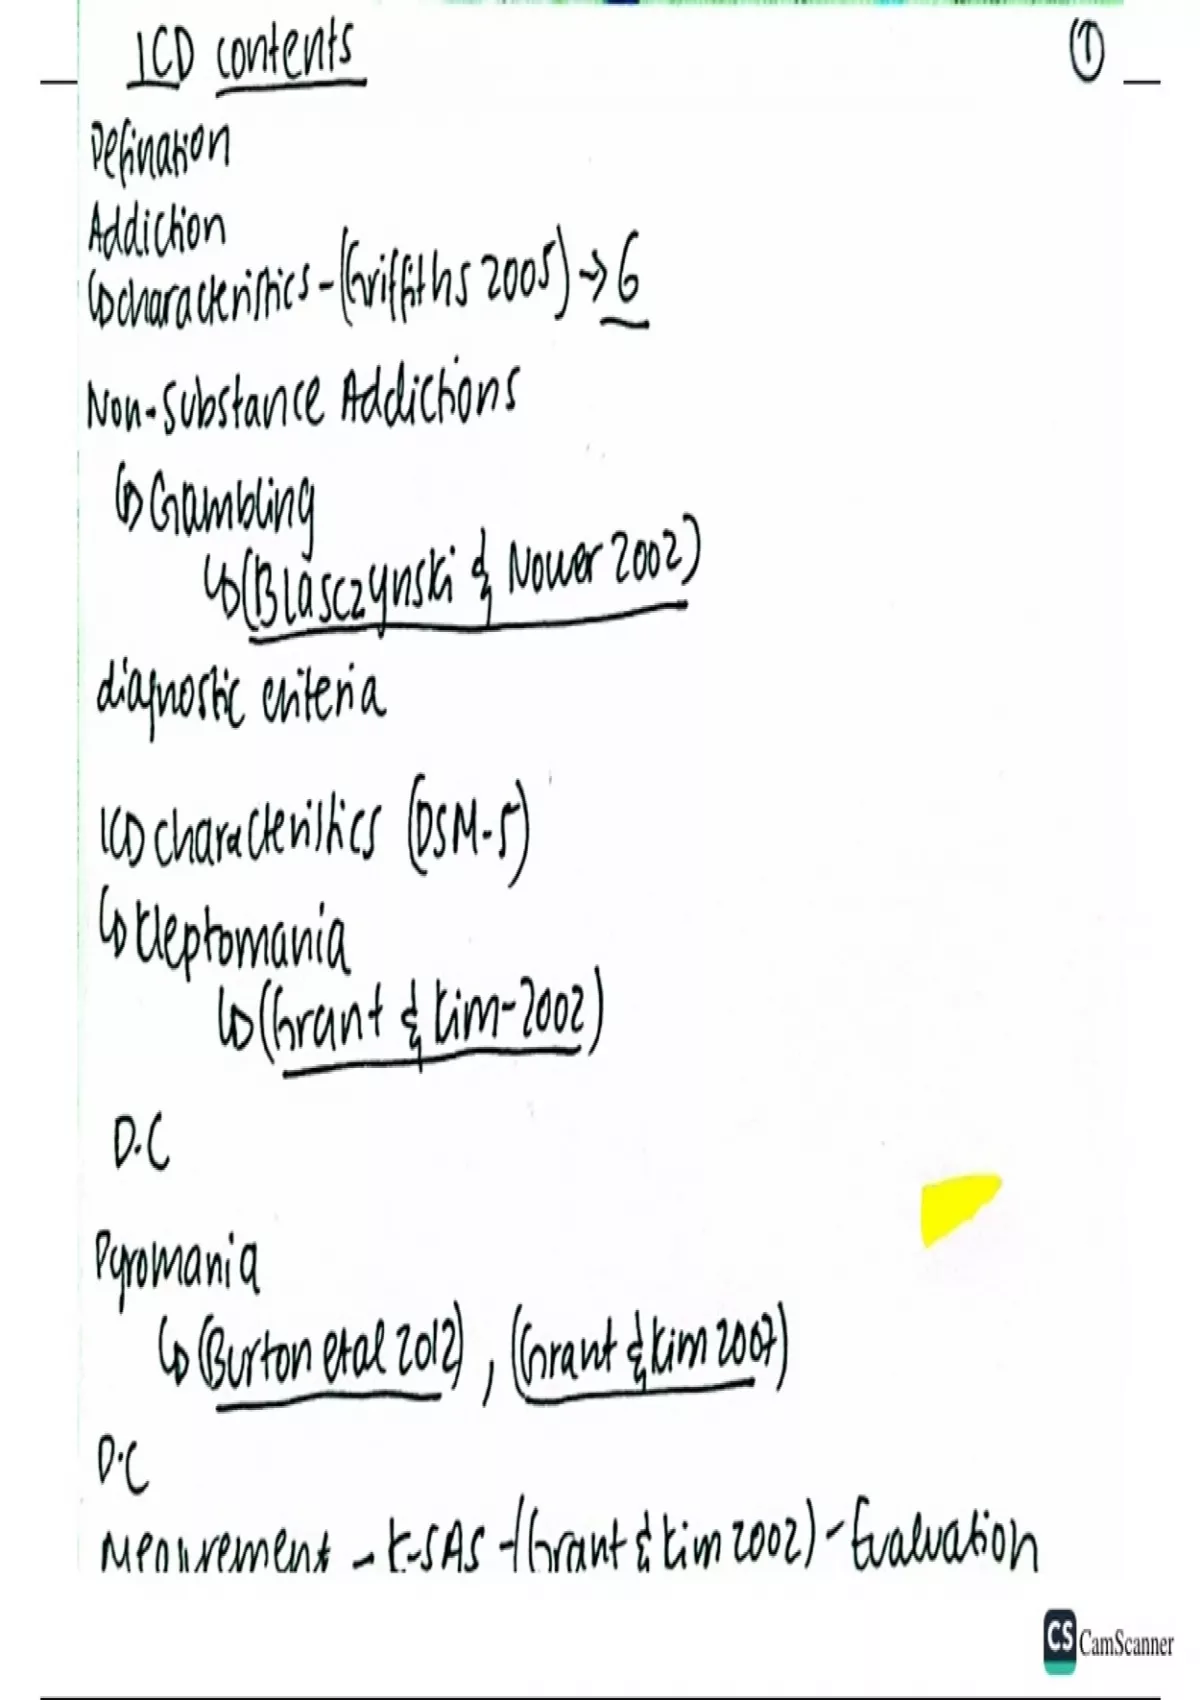 ICD contents ①
Defination
Addiction
↳ characteristics - (Griffiths 2005) → 6
Non-Substance Addictions
↳ Gambling
↳ (Blasczynski & Nower 2002)
diagnostic criteria
ICD characteristics (DSM-5)
↳ kleptomania
↳ (Grant & kim-2002)
D.C
Pyromania
↳ (Burton etal 2012), (Grant & kim 2007)
D.C
Measurement - K-SAS - (Grant & kim 2002) - Evaluation
CS CamScanner